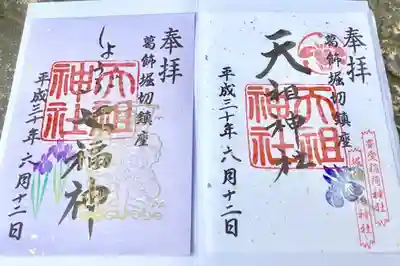 奉拝
葛飾堀切鎮座
天祖神社
天祖
神社
平成三十年六月十二日
奉拝
葛飾堀切鎮座
しょうぶ七福神
天祖
神社
平成三十年六月十二日